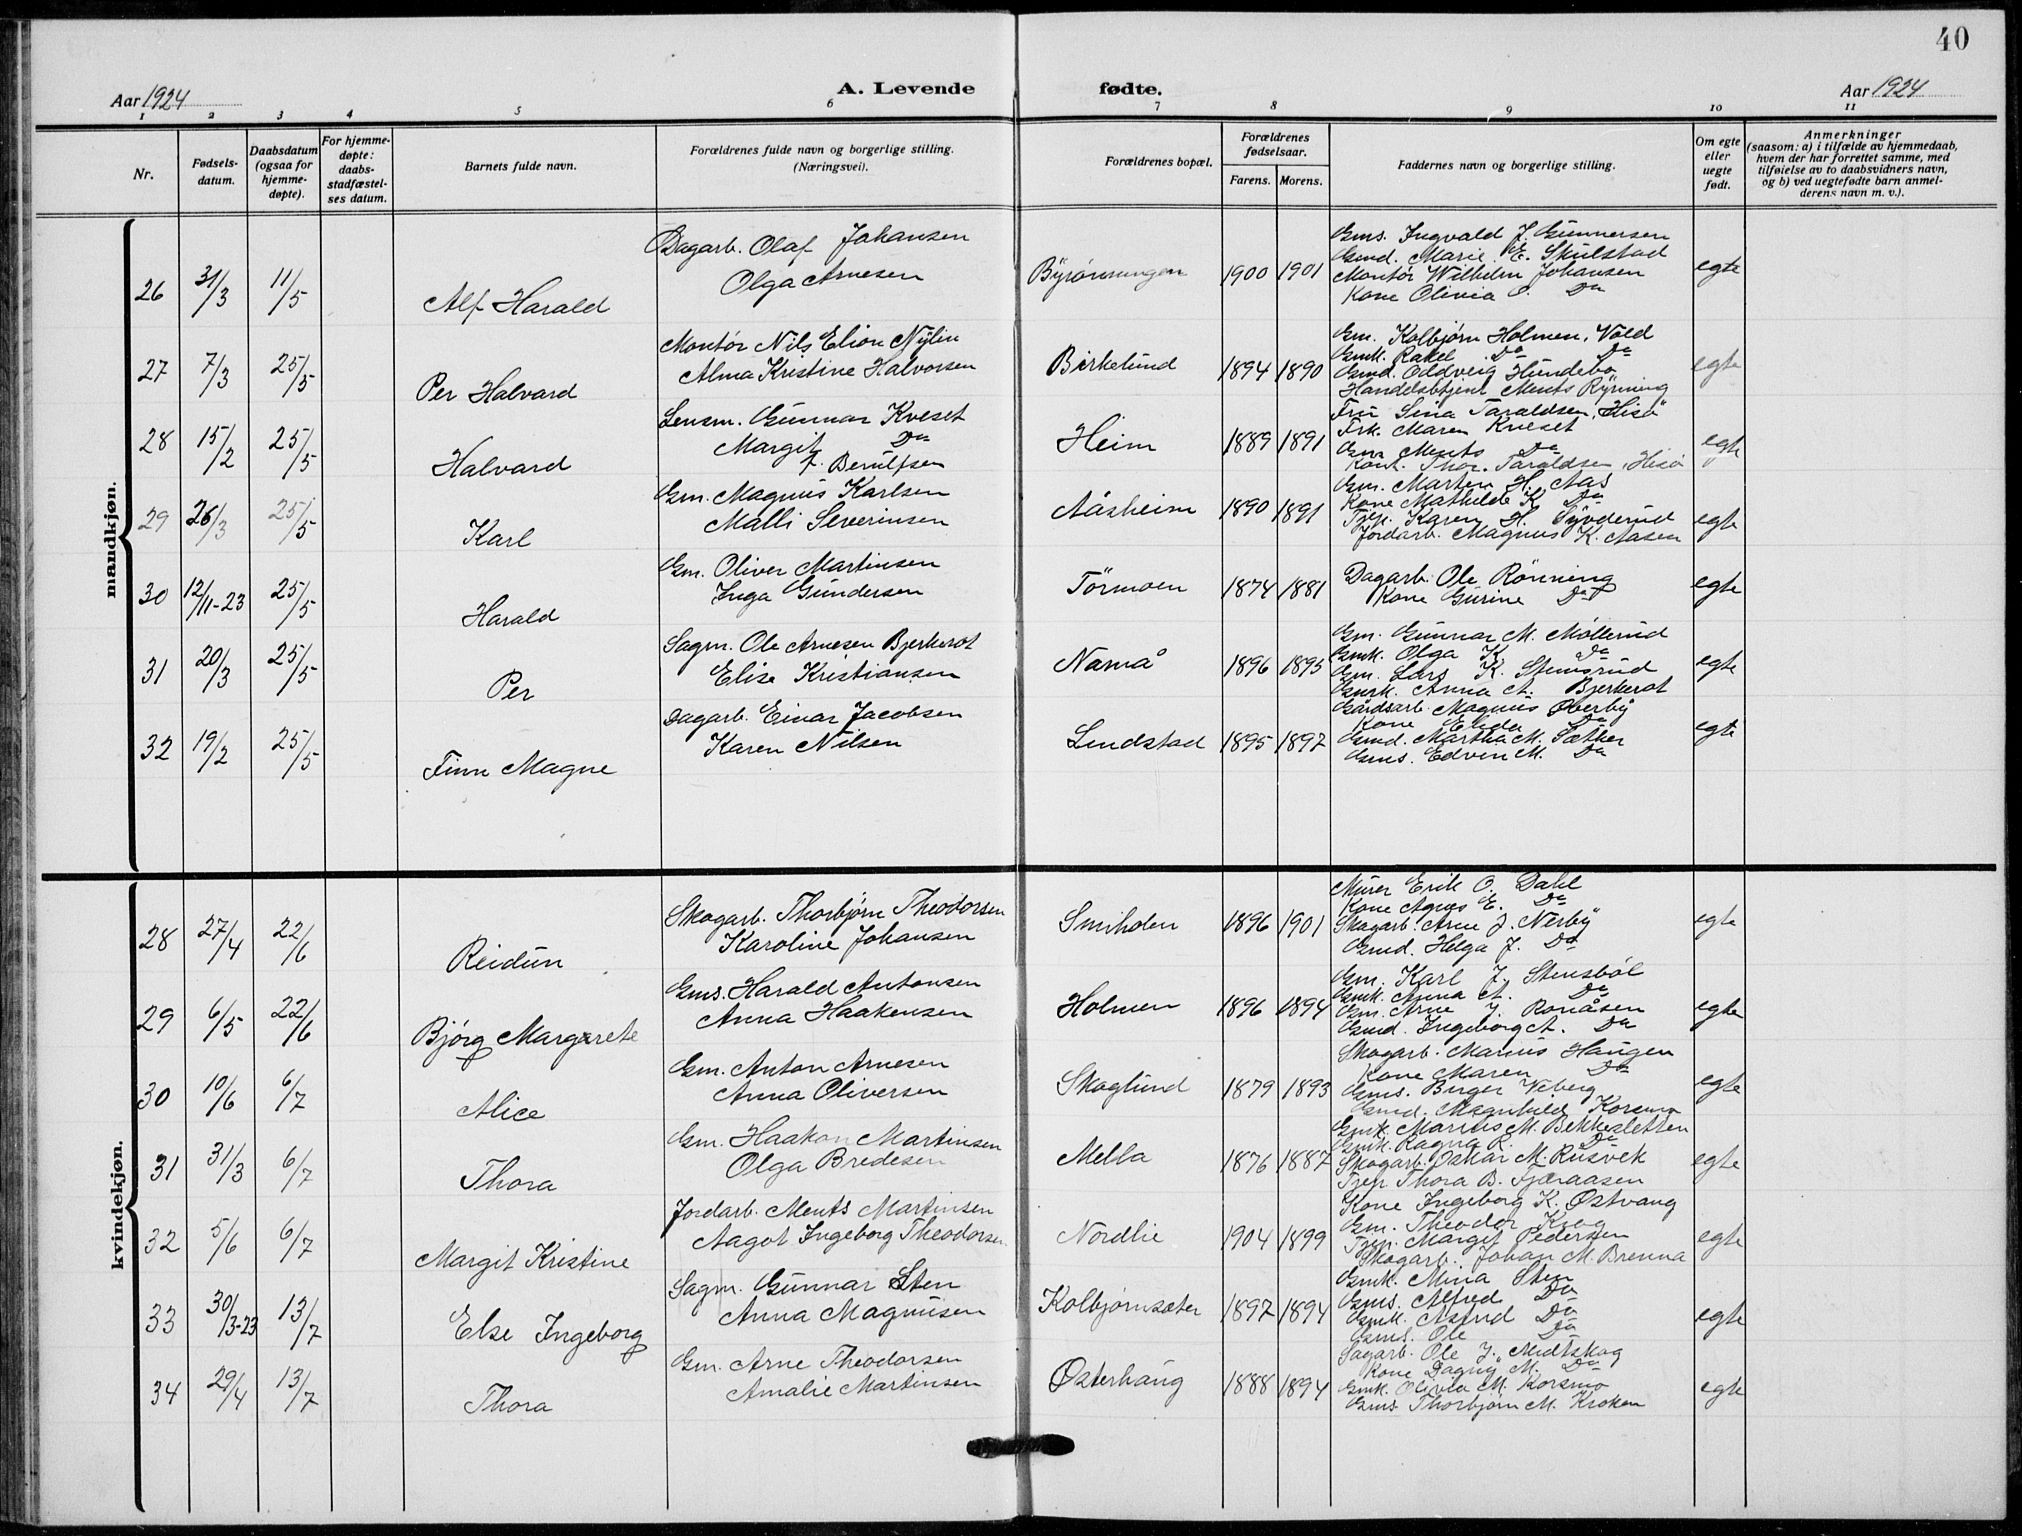 40
Aar 1924
A. Levende fødte.
Aar 1924
1 2 3 4 5 6 7 8 9 10 11
Nr.
Fødsels-
datum.
Daabsdatum
(ogsaa for
hjemme-
døpte).
For hjemme-
døpte:
daabs-
stadfæstel-
ses datum.
Barnets fulde navn.
Forældrenes fulde navn og borgerlige stilling.
(Næringsvei).
Forældrenes bopæl.
Forældrenes
fødselsaar.
Farens. Morens.
Faddernes navn og borgerlige stilling.
Om egte
eller
uegte
født.
Anmerkninger
(saasom: a) i tilfælde av hjemmedaab,
hvem der har forrettet samme, med
tilføielse av to daabsvidners navn,
og b) ved uegtefødte barn anmel-
derens navn m. v.).
mandkjøn.
26 31/3 11/5 Alf Harald
Dagarb. Olaf Johansen
Olga Arnesen
1900 1901
Gms. Ingvald J. Gunnersen
Gmd. Marie E. Skulstad
Montør Wilhelm Johansen
Kone Olivia O. Do
egte
27 7/3 25/5 Per Halvard
Montør Nils Elion Nylin
Alma Kristine Halvorsen
Birkelund 1894 1890
Gm. Kolbjørn Holmen, Vold
Gmk. Rakel Do Do
Gmd. Oddveig Hundebo
Handelsbetjent Ments Rynning
egte
28 15/2 25/5 Halvard
Lensm. Gunnar Kveset
Margit Do
f. Berulfsen
Heim 1889 1891
Fru Sina Taraldsen, Hisø
Frk. Maren Kveset
Gm. Ments Do
Thor. Taraldsen, Hisø
egte
29 26/3 25/5 Karl
Gm. Magnus Karlsen
Malli Severinsen
Aasheim 1890 1891
Gm. Marten H. Aas
Kone Mathilde K. Do
Tjep. Karen H. Tyvderud
Jordarb. Magnus K. Aasen
egte
30 12/11-23 25/5 Harald
Gm. Oliver Martinsen
Inga Gundersen
Tørmoen 1874 1881
Dagarb. Ole Rønning
Kone Gurine Do
egte
31 20/3 25/5 Per
Sagm. Ole Arnesen Bjerkerot
Elise Kristiansen
Namå 1896 1895
Gm. Gunnar M. Møllerud
Gmk. Olga K. Do
Gm. Lars K. Stensrud
Gmk. Anna A. Bjerkerot
egte
32 19/2 25/5 Finn Magne
Dagarb. Einar Jacobsen
Karen Nilsen
Lindstad 1895 1897
Gårdsarb. Magnus Øverby
Kone Elida Do
Gmd. Martha M. Sæther
Gms. Edvin M. Do
egte
kvindekjøn.
28 27/4 22/6 Reidun
Skogarb. Thorbjørn Theodorsen
Karoline Johansen
Smiholen 1896 1901
Murer Erik O. Dahl
Kone Agnes E. Do
Skogarb. Arne J. Nerby
Gmd. Helga J. Do
egte
29 6/5 22/6 Bjørg Margarete
Gms. Harald Antonsen
Anna Haakensen
Holmen 1896 1894
Gm. Karl J. Stensbøl
Gmk. Anna A. Do
Gm. Arne J. Ronåsen
Gmd. Ingeborg A. Do
egte
30 10/6 6/7 Alice
Gm. Anton Arnesen
Anna Oliversen
Skoglund 1879 1893
Skogarb. Marius Haugen
Kone Maren Do
Gms. Birger Viberg
Gmd. Magnhild Korsmo
egte
31 31/3 6/7 Thora
Gm. Haakon Martinsen
Olga Bredesen
Mella 1876 1887
Gmk. Marius M. Bekkesletten
Gmk. Ragna R. Do
Skogarb. Oskar M. Rusvek
Tjep. Thora B. Fjæraasen
egte
32 5/6 6/7 Margit Kristine
Jordarb. Ments Martinsen
Aagot Ingeborg Theodorsen
Nordlie 1904 1899
Kone Ingeborg K. Østvang
Gm. Theodor Krog
Tjep. Margit Pedersen
Skogarb. Johan M. Brenna
egte
33 30/3-23 13/7 Else Ingeborg
Sagm. Gunnar Sten
Anna Magnusen
Kolbjørnsæter 1897 1894
Gmk. Mina Sten
Gms. Alfred Do
Gmk. Astrid Do
Gms. Ole Do
egte
34 29/4 13/7 Thora
Gm. Arne Theodorsen
Amalie Martinsen
Østerhaug 1888 1894
Sagarb. Ole J. Midtskog
Kone Dagny M. Do
Gmk. Olivia M. Korsmo
Gms. Thorbjørn M. Kroken
egte